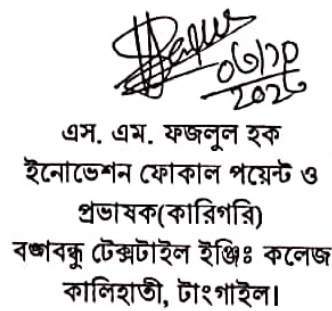 এস. এম. ফজলুল হক
ইনোভেশন ফোকাল পয়েন্ট ও
প্রভাষক(কারিগরি)
বঙ্গবন্ধু টেক্সটাইল ইঞ্জিঃ কলেজ
কালিহাতী, টাংগাইল।